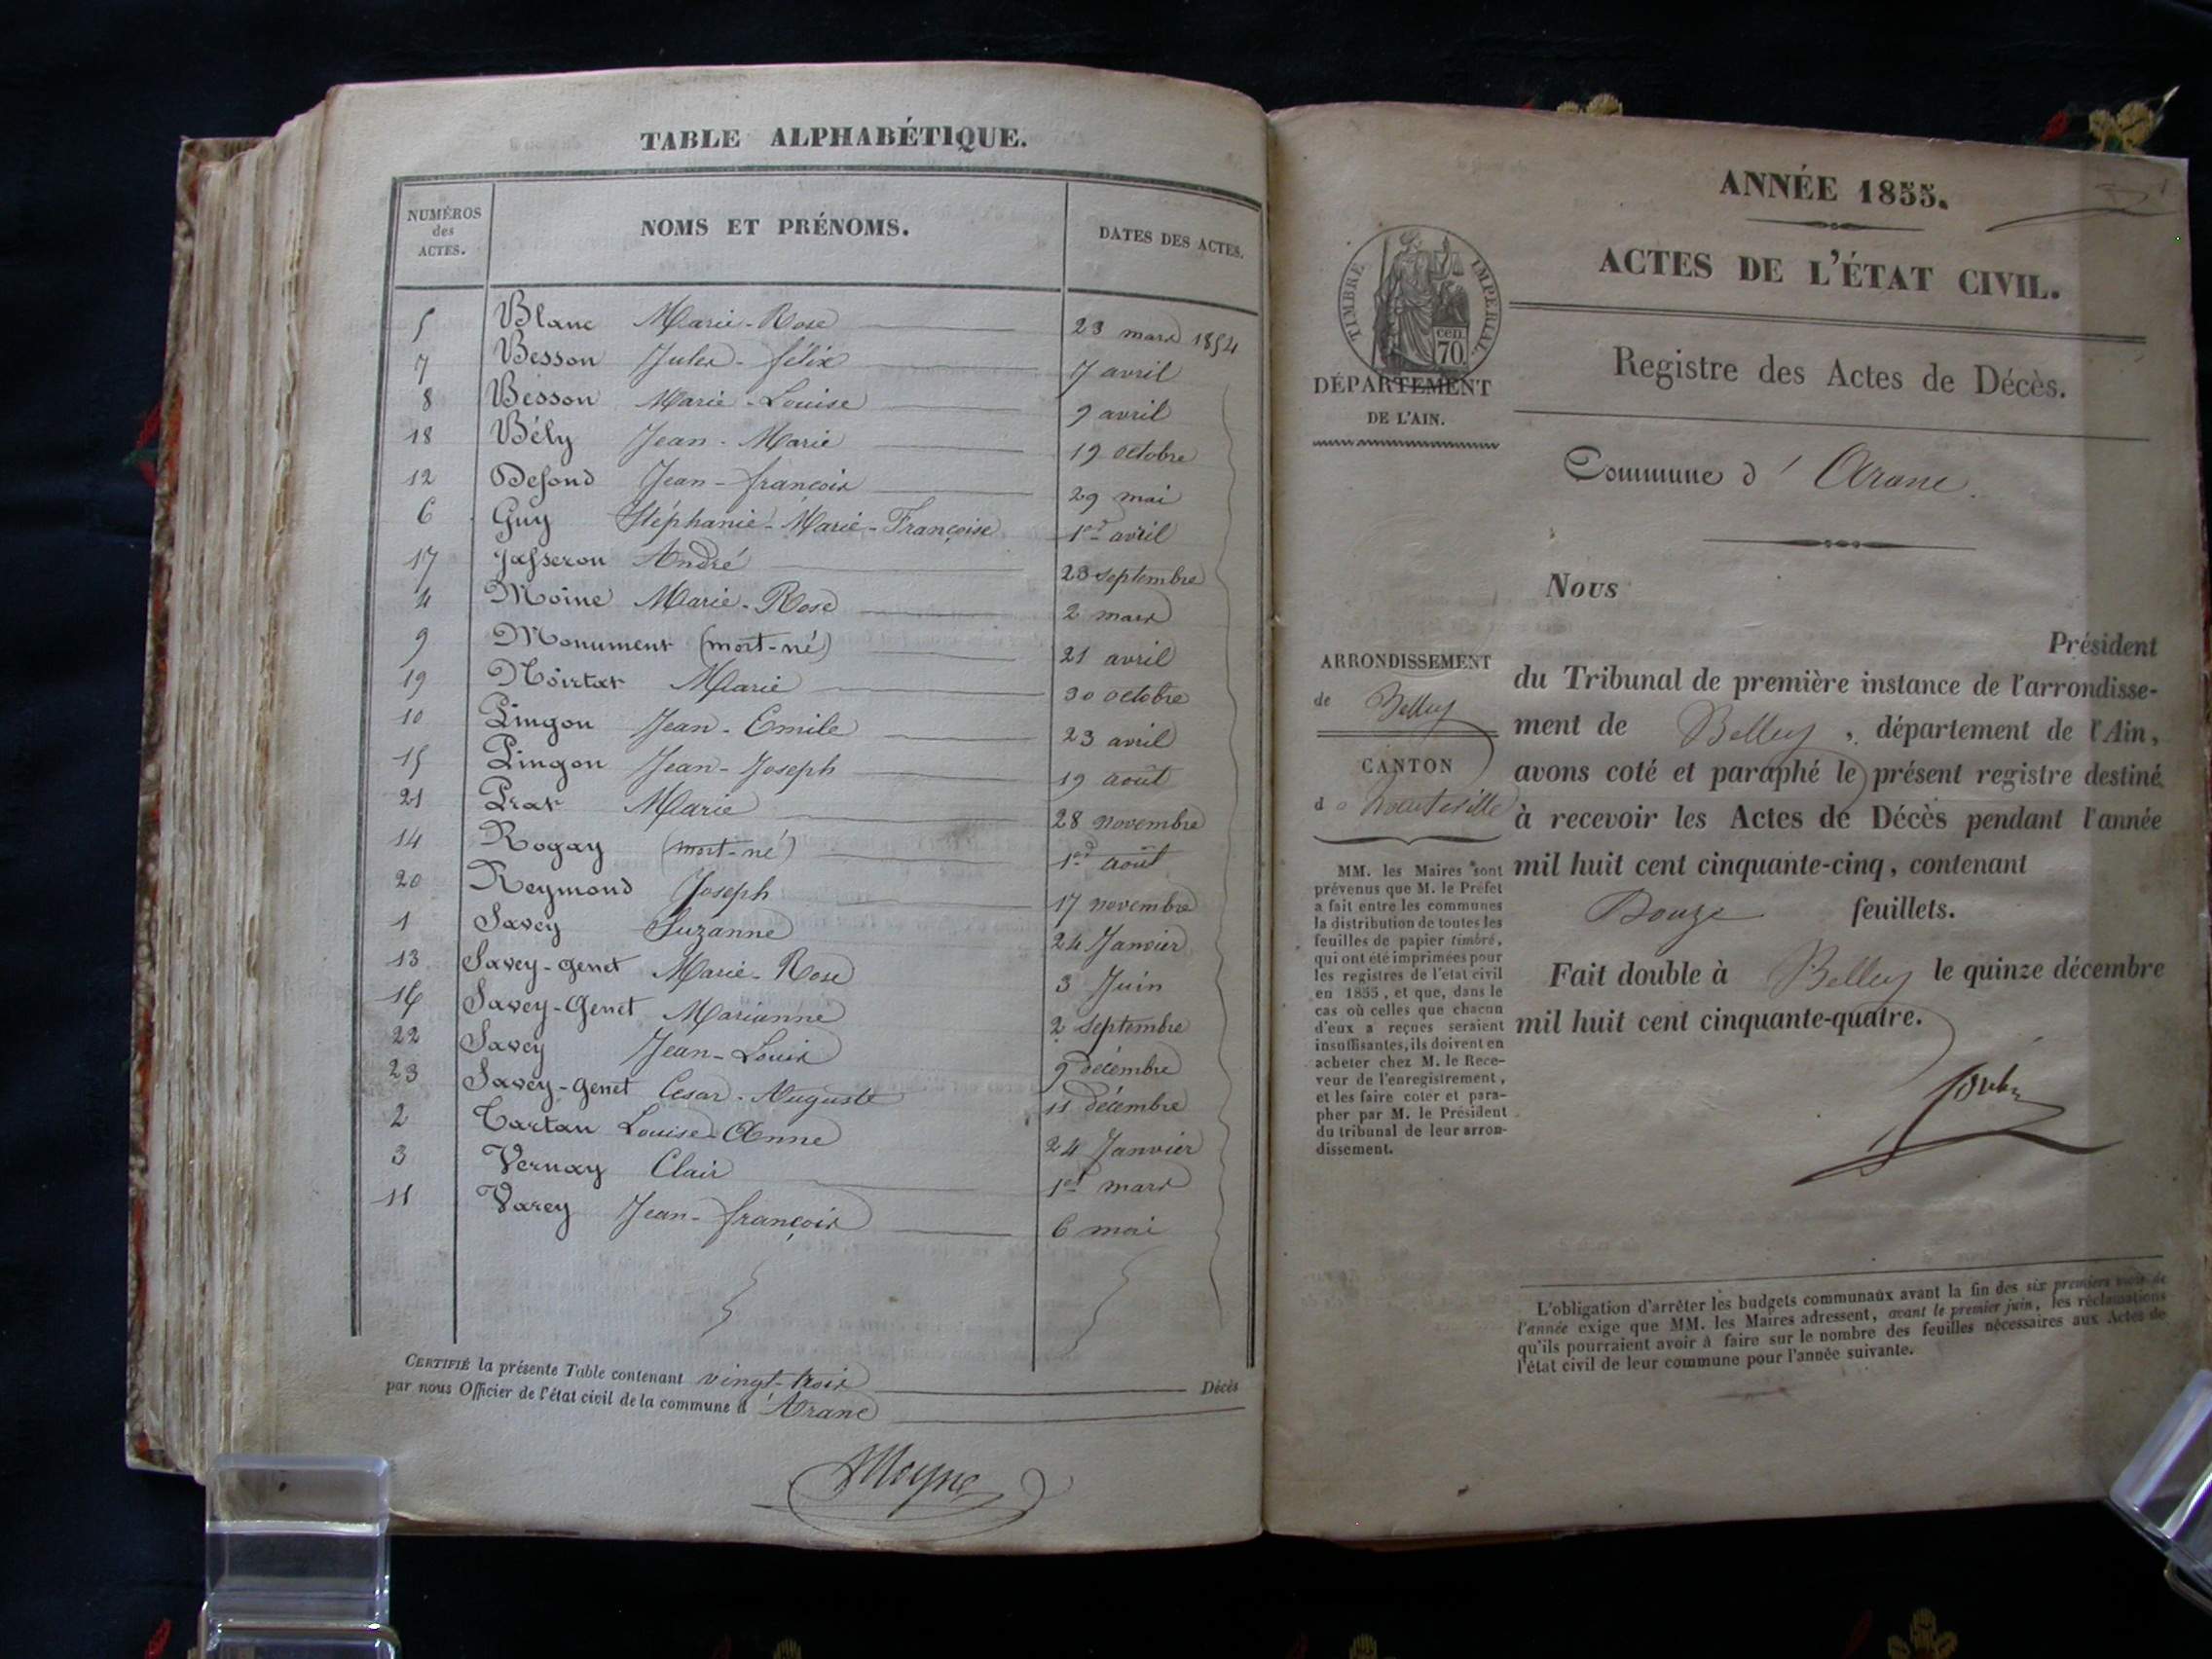 TABLE ALPHABÉTIQUE.
NUMÉROS des ACTES. NOMS ET PRÉNOMS. DATES DES ACTES.
5 Blanc Marie-Rose 23 mars 1854
7 Besson Jules-félix 7 avril
8 Besson Marie-Louise 9 avril
18 Bély Jean-Marie 19 octobre
12 Defond Jean-françois 29 mai
6 Guy Stéphanie-Marie-Françoise 1er avril
17 Jasseron André 23 septembre
4 Moine Marie-Rose 2 mars
9 Monument (mort-né) 21 avril
19 Noirtat Marie 30 octobre
10 Pingon Jean-Emile 23 avril
15 Pingon Jean-Joseph 19 août
21 Prat Marie 28 novembre
14 Rogay (mort-né) 1er août
20 Reymond Joseph 17 novembre
1 Savey Suzanne 24 Janvier
13 Savey-genet Marie-Rose 3 Juin
16 Savey-Genet Marianne 2 septembre
22 Savey Jean-Louis 9 décembre
23 Savey-genet Cesar-Auguste 11 décembre
2 Tartan Louise-Anne 24 Janvier
3 Vernay Clair 1er mars
11 Varey Jean-françois 6 mai
CERTIFIÉ la présente Table contenant vingt-trois Décès
par nous Officier de l'état civil de la commune d'Aranc
Moyne
ANNÉE 1855.
ACTES DE L'ÉTAT CIVIL.
TIMBRE IMPÉRIAL.
cen.
70.
DÉPARTEMENT
DE L'AIN.
Registre des Actes de Décès.
Commune d'Aranc.
Nous
Président
du Tribunal de première instance de l'arrondisse-
ment de Belley, département de l'Ain,
avons coté et paraphé le présent registre destiné
à recevoir les Actes de Décès pendant l'année
mil huit cent cinquante-cinq, contenant
Douze feuillets.
Fait double à Belley le quinze décembre
mil huit cent cinquante-quatre.
ARRONDISSEMENT
de Belley
CANTON
d'hauteville
MM. les Maires sont
prévenus que M. le Préfet
a fait entre les communes
la distribution de toutes les
feuilles de papier timbré,
qui ont été imprimées pour
les registres de l'état civil
en 1855, et que, dans le
cas où celles que chacun
d'eux a reçues seraient
insuffisantes, ils doivent en
acheter chez M. le Rece-
veur de l'enregistrement,
et les faire coter et para-
pher par M. le Président
du tribunal de leur arron-
dissement.
L'obligation d'arrêter les budgets communaux avant la fin des six premiers mois de
l'année exige que MM. les Maires adressent, avant le premier juin, les réclamations
qu'ils pourraient avoir à faire sur le nombre des feuilles nécessaires aux Actes de
l'état civil de leur commune pour l'année suivante.